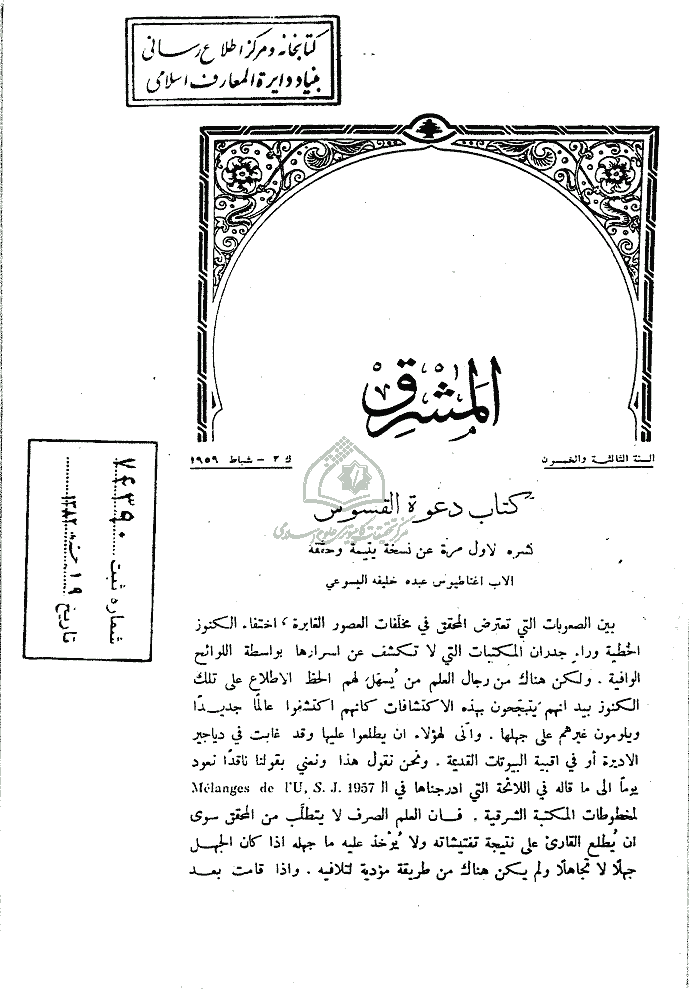 كتابخانه و مركز اطلاع رسانى
بنياد دايرة المعارف اسلامى
المشرق
السنة الثالثة والخمسون
ك ٢ – شباط ١٩٥٩
كتاب دعوة القسوس
نشره لاول مرة عن نسخة يتيمة وحققه
الاب اغناطيوس عبده خليفه اليسوعي
شماره ثبت ٧٤٣٩٠
تاريخ
بين الصعوبات التي تعترض المحقق في مخلّفات العصور الغابرة ، اختفاء الكنوز
الخطية وراء جدران المكتبات التي لا تكشف عن اسرارها بواسطة اللوائح
الوافية . ولكن هناك من رجال العلم من يُسهّل لهم الحظ الاطلاع على تلك
الكنوز بيد انهم يتبجّحون بهذه الاكتشافات كانهم اكتشفوا عالمًا جديدًا
ويلومون غيرهم على جهلها . وأنّى لهؤلاء ان يطلعوا عليها وقد غابت في دياجير
الاديرة أو في اقبية البيوتات القديمة . ونحن نقول هذا ونعني بقولنا ناقدًا نعود
يوماً الى ما قاله في اللائحة التي ادرجناها في الـ Mélanges de l'U, S. J. 1957
لمخطوطات المكتبة الشرقية . فان العلم الصرف لا يتطلّب من المحقق سوى
ان يُطلع القارئ على نتيجة تفتيشاته ولا يُؤخذ عليه ما جهله اذا كان الجهل
جهلًا لا تجاهلًا ولم يكن هناك من طريقة مؤدية لتلافيه . واذا قامت بعد